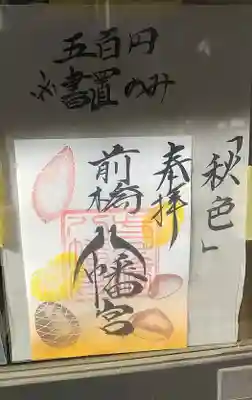 五百円
※書置のみ
「秋色」
奉拝
前橋八幡宮